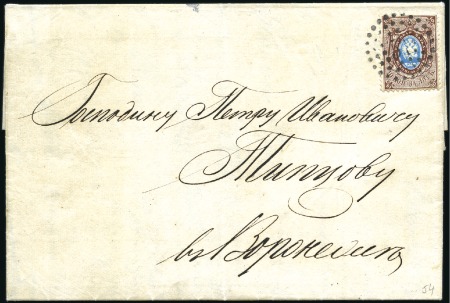 Господину Петру Ивановичу
Типцову
въ Воронежъ
54